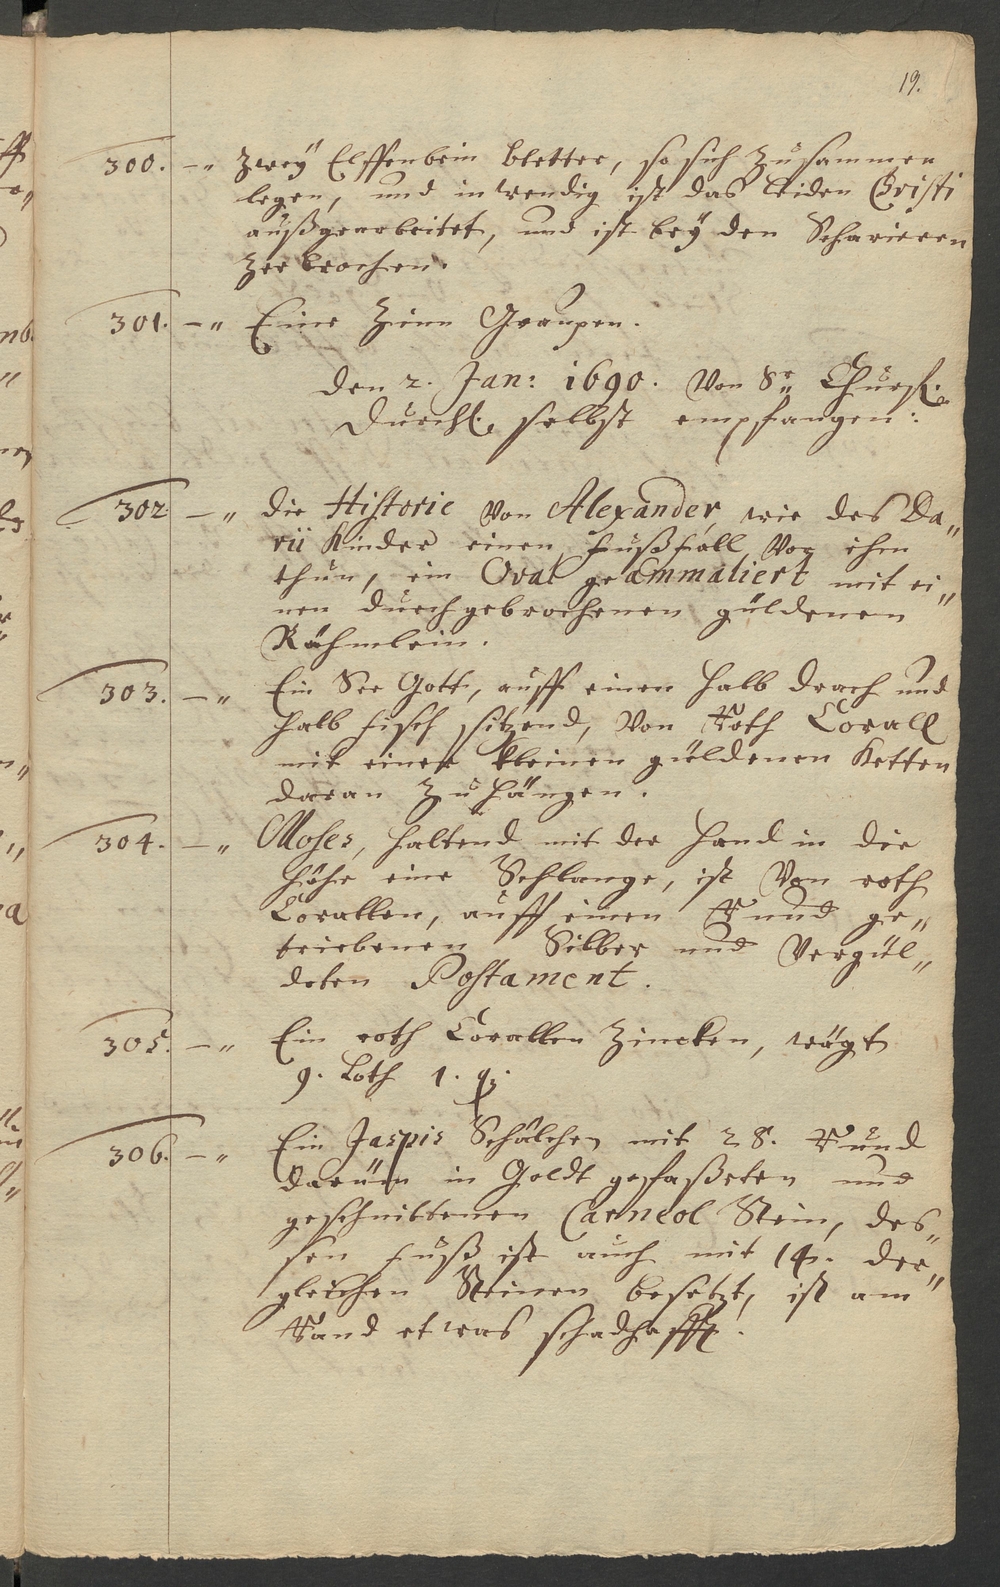 19.
300. -" Zweÿ Elffenbein bletter, so sich zusammen
legen, und inwendig ist das leiden Christi
außgearbeitet, und ist beÿ den Scharieren
zerbrochen.
301. -" Eine Zinn Graupen.
Den 2. Jan: 1690. Von Sr. Churfl.
Durchl. selbst empfangen:
302 -" die Historie von Alexander, wie des Da"
rii Kinder einen fußfall vor ihm
thun, ein Oval geämmaliert mit ei"
nen durchgebrochenen güldenen
Rähmlein.
303. -" Ein See Gott, auff einen halb drach und
halb fisch sitzend, von Roth Corall
mit einer kleinen güldenen Ketten
daran zu hängen.
304. -" Moses, haltend mit der hand in die
höhe eine Schlange, ist von roth
Corallen, auff einen Rund ge"
triebenen Silber und Vergül"
deten Postament.
305. -" Ein roth Corallen Zincken, wägt
9. Loth 1. q.
306. -" Ein Jaspis Schälchen mit 28. Rund
darüm in Goldt gefaßeten und
geschnittenen Carneol Stein, des"
sen fuß ist auch mit 14. der"
gleichen Steinen besetzt, ist am
Rand etwas schadhafft.